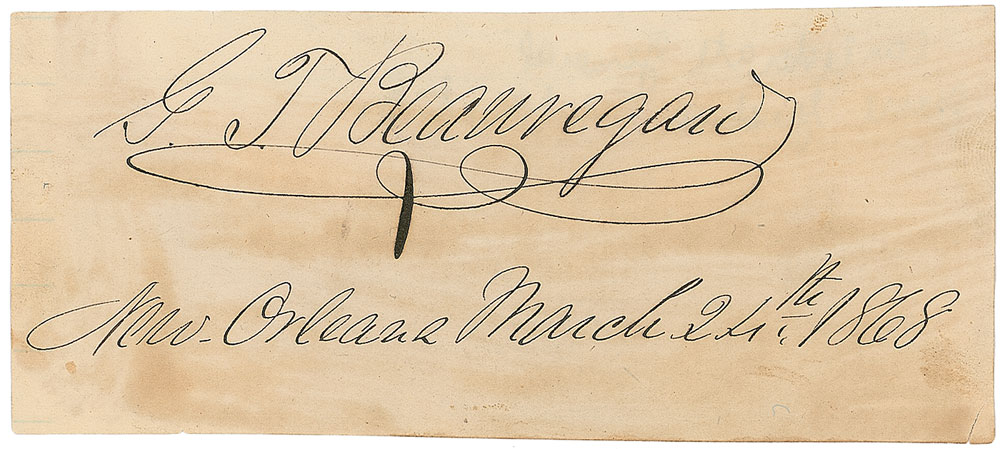 G. T. Beauregard
New Orleans March 24th 1868